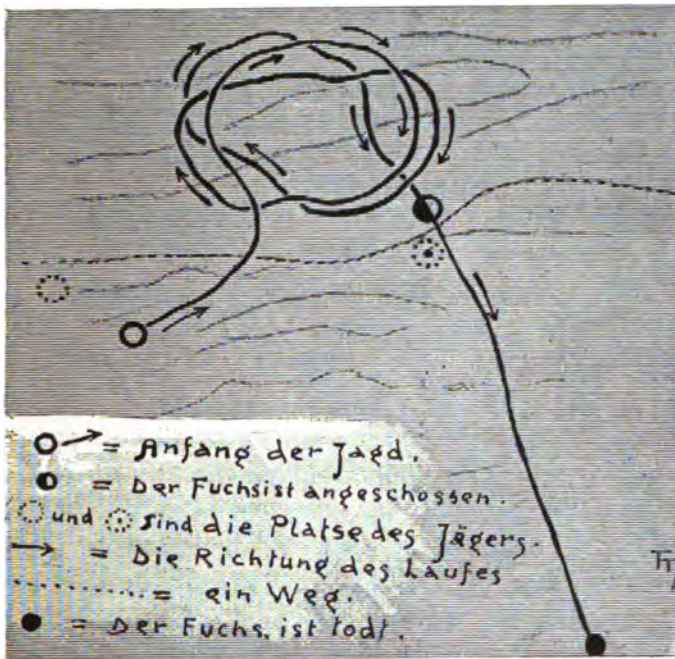 = Anfang der Jagd.
= Der Fuchs ist angeschossen.
und sind die Platse des Jägers.
= Die Richtung des Laufes
= ein Weg.
= Der Fuchs, ist todt.